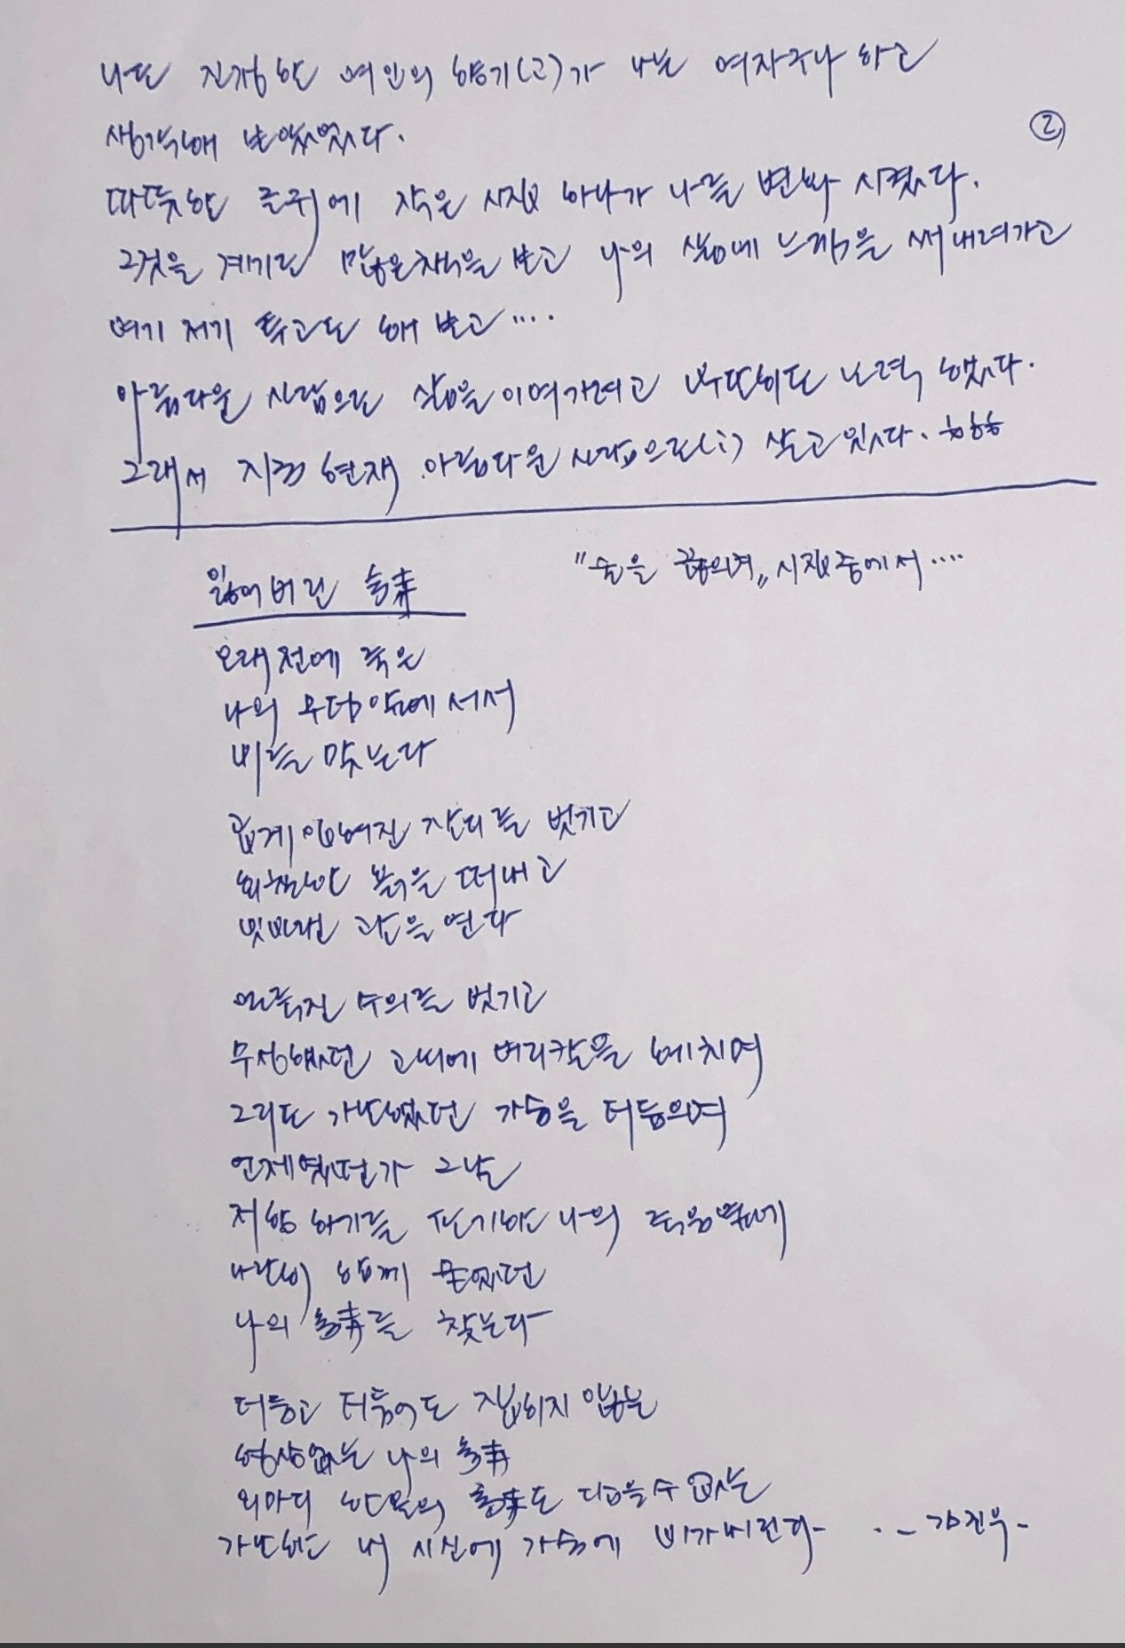 나도 진정한 여인의 향기(고)가 나는 여자구나 하고
생각해 보았었다.
②
따뜻한 글귀에 작은 시집 하나가 나를 변화 시켰다.
그것을 계기로 많은책을 보고 나의 삶에 느낌을 써내려가고
여기 저기 투고도 해 보고 ....
아름다운 사람으로 삶을 이여가려고 부단히도 노력 했다.
그래서 지금 현재 아름다운 사람으로(?) 살고있다. ㅎㅎㅎ
잃어버린
"술을 끊으며" 시집중에서 ....
오래전에 죽은
나의 무덤앞에 서서
비를 맞는다
곱게 입혀진 잔디를 벗기고
흙을 떠내고
빛바랜 관을 연다
얼룩진 수의를 벗기고
무성했던 머리칼을 헤치며
그리도 가난했던 가슴을 더듬으며
언제였던가 그날
저항 하기를 포기한 나의 죽음옆에
나란히 함께 묻었던
나의 를 찾는다
더듬고 더듬어도 집히지 않는
형상없는 나의
외마디 한올의 도 없는
가난한 내 시신에 가슴에 비가내린다- ..- 김진우-